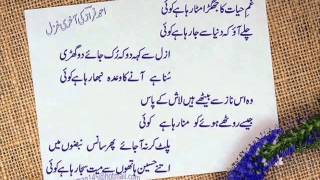 احمد فراز کی آخری غزل
غمِ حیات کا جھگڑا مٹا رہا ہے کوئی
چلے آؤ کہ دنیا سے جا رہا ہے کوئی
ازل سے کہہ دو کہ رک جائے دو گھڑی
سنا ہے آنے کا وعدہ نبھا رہا ہے کوئی
وہ اس ناز سے بیٹھے ہیں لاش کے پاس
جیسے روٹھے ہوئے کو منا رہا ہے کوئی
پلٹ کر نہ آ جائے پھر سانس نبضوں میں
اتنے حسین ہاتھوں سے میت سجا رہا ہے کوئی